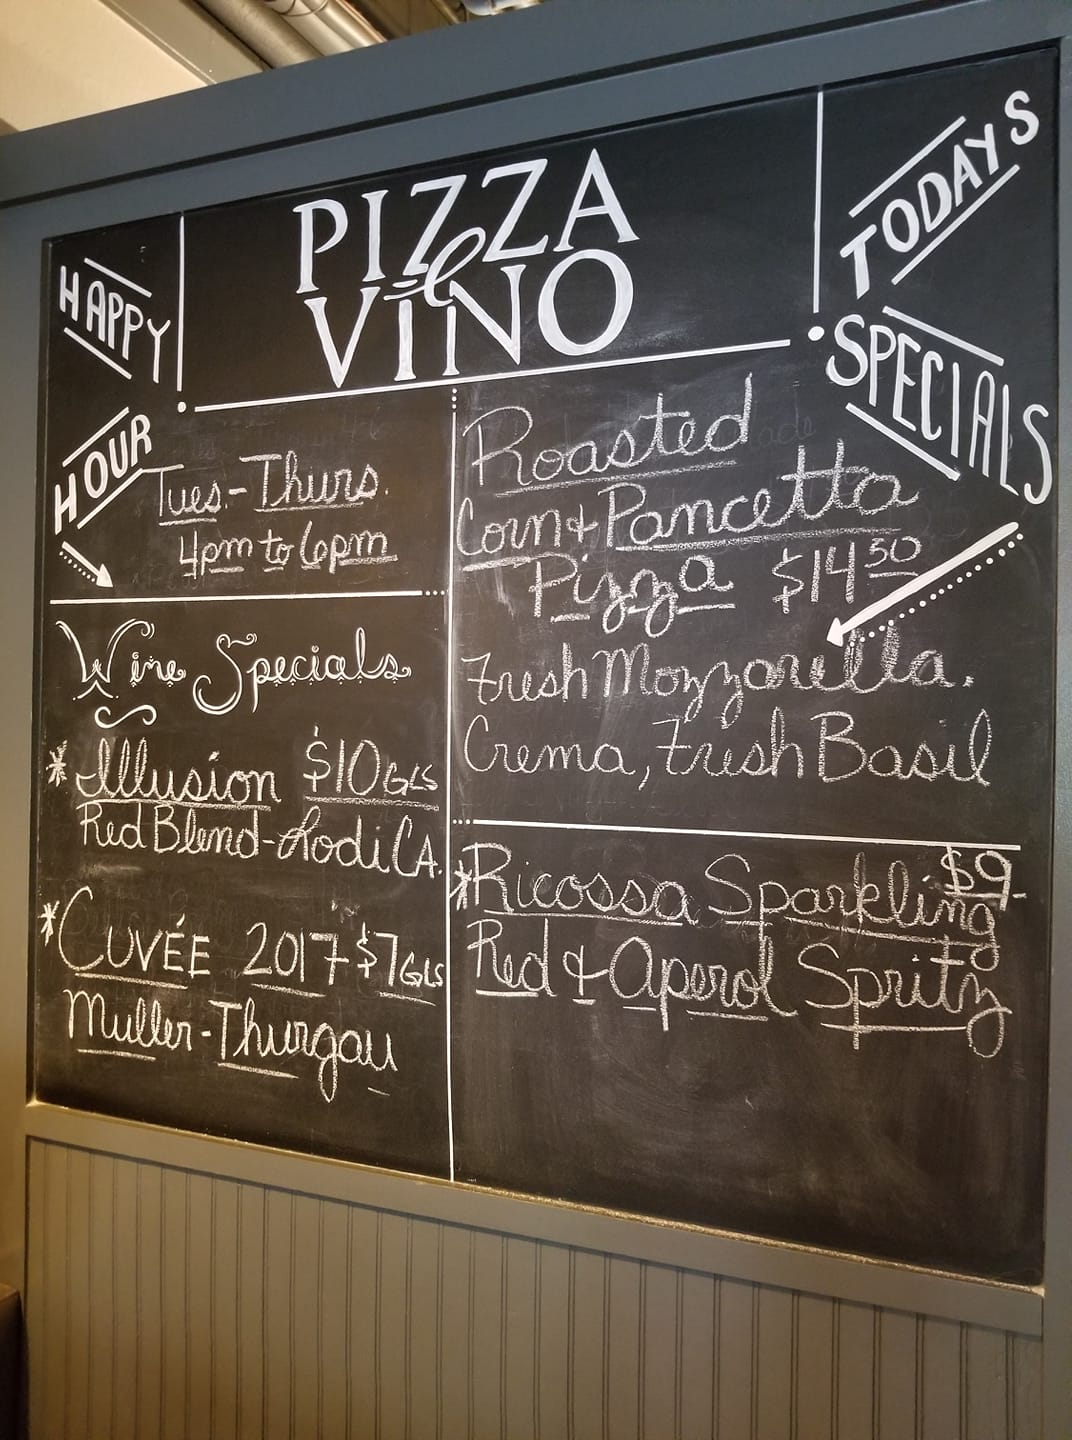 PIZZA
e
VINO
HAPPY
HOUR
Tues-Thurs.
4pm to 6pm
Wine Specials
* Illusion $10 GLS
Red Blend-Lodi CA.
* CUVÉE 2017 $7 GLS
Muller-Thurgau
TODAYS
SPECIALS
Roasted
Corn & Pancetta
Pizza $14 50
Fresh Mozzarella.
Crema, Fresh Basil
$9-
* Ricossa Sparkling
Red & Aperol Spritz